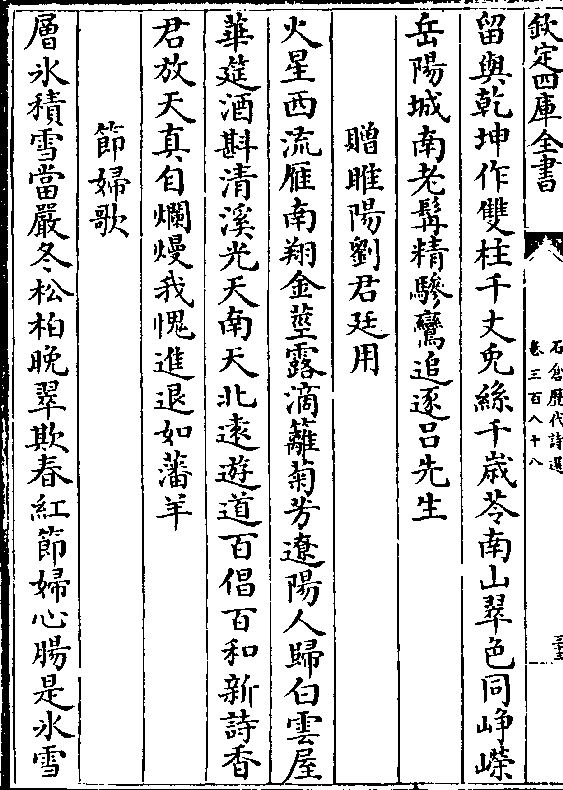 欽定四庫全書
石倉歷代詩選
卷三百八十八
留與乾坤作雙柱千丈兎絲千歲苓南山翠色同崢嶸
岳陽城南老髯精驂鸞追逐吕先生
贈睢陽劉君廷用
火星西流雁南翔金莖露滴籬菊芳遼陽人歸白雲屋
華筵酒斟清溪光天南天北遠遊道百倡百和新詩香
君放天真自爛熳我愧進退如藩羊
節婦歌
層氷積雪當嚴冬松柏晚翠欺春紅節婦心腸是氷雪